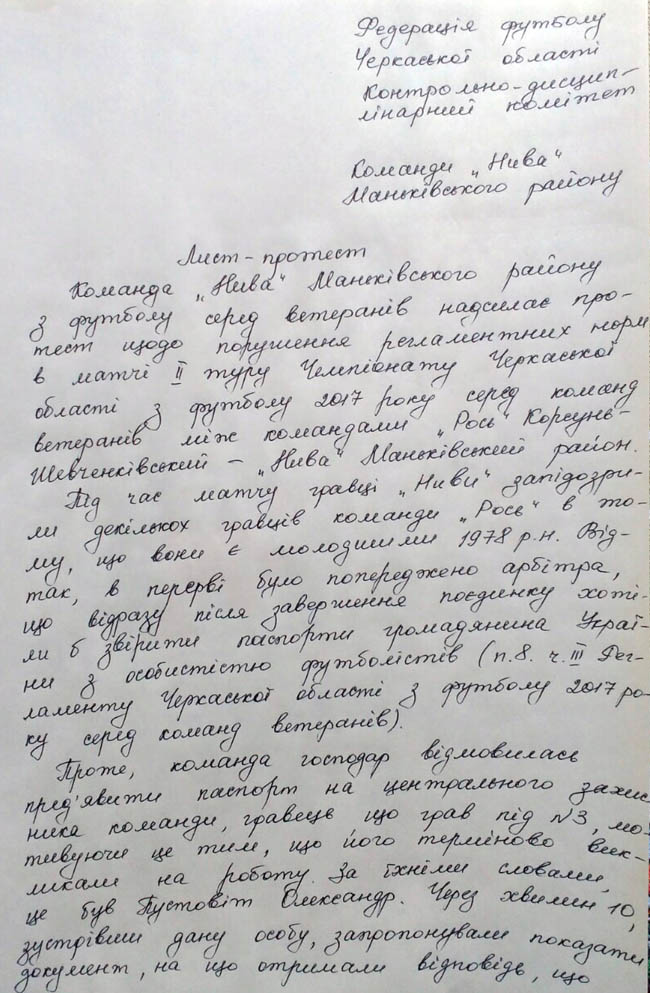 Федерація футболу
Черкаської області
Контрольно-дисцип-
лінарний комітет
Команди „Нива"
Маньківського району
Лист-протест
Команда „Нива" Маньківського району
з футболу серед ветеранів надсилає про-
тест щодо порушення регламентних норм
в матчі II туру Чемпіонату Черкаської
області з футболу 2017 року серед команд
ветеранів між командами „Рось" Корсунь-
Шевченківський – „Нива" Маньківський район.
Під час матчу гравці „Ниви" запідозри-
ли декількох гравців команди „Рось" в то-
му, що вони є молодшими 1978 р.н. Від-
так, в перерві було попереджено арбітра,
що відразу після завершення поєдинку хоті-
ли б звірити паспорти громадянина Украї-
ни з особистістю футболістів (п.8. ч. III Рег-
ламенту Черкаської області з футболу 2017 ро-
ку серед команд ветеранів).
Проте, команда господар відмовилась
пред'явити паспорт на центрального захис
ника команди, гравець що грав під №3, мо-
тивуючи це тим, що його терміново вик-
ликали на роботу. За їхніми словами,
це був Пустовіт Олександр. Через хвилин 10,
зустрівши дану особу, запропонували показати
документ, на що отримали відповідь, що